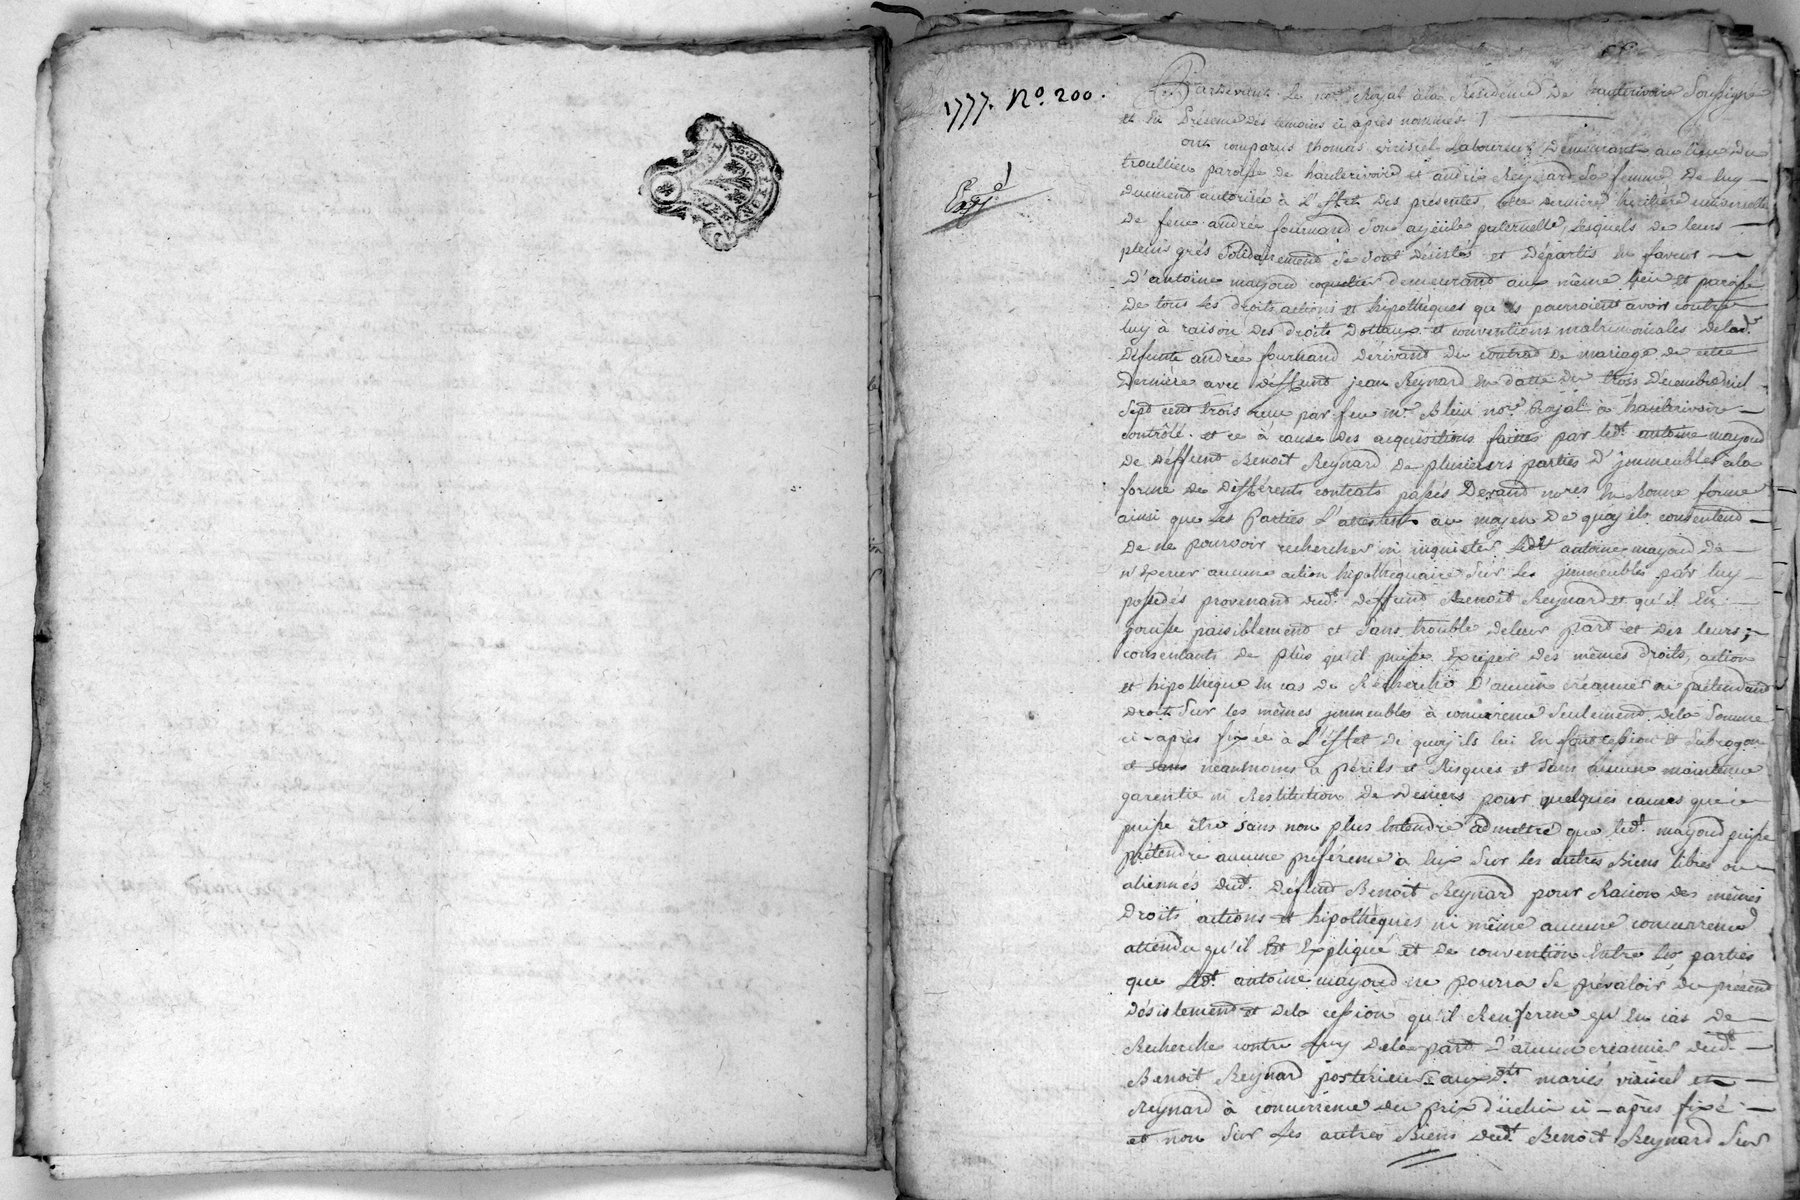 1777. No. 200.
Expé
Pardevant Le nore. Royal à la Résidence De hauterivoire Soussigné
et En Présence Des temoins ci après nommés /
ont comparus thomas viricel Laboureur Demeurant au lieu Du
troullieu paroisse de hauterivoire et andrée Reynard Sa femme De luy
Duement autorisée à L'Effet Des présentes, cette Dernière héritière universelle
De feue andrée fournand Son ayeüle paternelle, Lesquels de leurs
pleins grés Solidairement Se Sont Désistés et Départis En faveur
D'antoine mayoud coquetier demeurant aux même lieu et paroisse
De tous Les droits, actions et hipothèques qu'ils pourroient avoir contre
luy à raison Des droits Dottaux et conventions matrimoniales Delad.
Défunte andrée fournand Dérivant Du contrat De mariage de cette
Dernière avec Déffunt jean Reynard En datte Du trois Décembre mil
Sept cent trois reçu par feu me. Blein nore. Royal à hauterivoire
contrôlé. et ce à cause Des acquisitions faittes par led.t antoine mayoud
De Déffunt Benoit Reynard De plusieurs parties D'jmmeubles à la
forme De Différents contrats passés Devand nores En Bonne forme
ainsi que Les Parties L'attestent au moyen De quoy ils consentend
De ne pouvoir rechercher ni inquieter Led.t antoine mayoud De
n'Exercer aucune action hipothéquaire Sur Les jmmeubles par luy
possedés provenand dud.t Deffund Benoit Reynard et qu'il En
jouisse paisiblement et Sans trouble deleur part et Des leurs;
consentants De plus qu'il puisse Exciper Des mêmes droits, action
et hipotheque En cas De Recherche D'aucun créancier ou prétendand
Droits Sur les mêmes jmmeubles à concurrence Seulement dela Somme
ci-après fixée à L'éffet de quoy ils lui En font cession Et Subrogation
et sans néanmoins à périls et Risques et Sans aucune maintenue
garentie ni Restitution De Deniers pour quelques causes que ce
puisse être sans non plus Entendre admettre que led.t mayoud puisse
prétendre aucune préférence à Eux Sur Les autres Biens libres ou
aliennés dud.t Défund Benoit Reynard pour Raison des mêmes
Droits actions et hipothèques ni même aucune concurrence
attendu qu'il Est Expliqué et De convention Entre Les parties
que Led.t antoine mayoud ne pourra Se prévaloir du présend
Désistement et Dela cession qu'il Renferme qu'En cas De
Recherche contre luy Dela part D'aucun créancier dud.t
Benoit Reynard posterieur aux d.ts mariés viricel et
Reynard à concurrence du prix d'icelui ci-après fixé
et non Sur Les autres Biens dud.t Benoit Reynard Sur